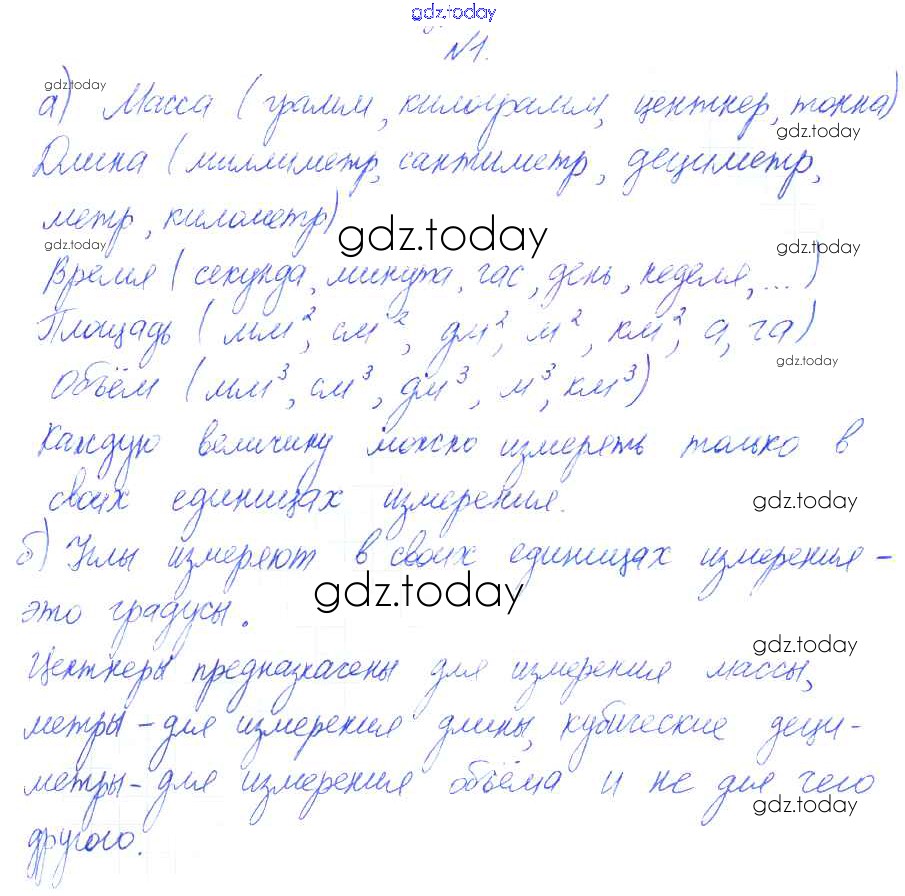 gdz.today
№1.
gdz.today
а) Масса (грамм, килограмм, центнер, тонна)
gdz.today
Длина (миллиметр, сантиметр, дециметр,
метр, километр)
gdz.today
gdz.today
gdz.today
Время (секунда, минута, час, день, неделя, ...)
Площадь (мм², см², дм², м², км², а, га)
gdz.today
Объём (мм³, см³, дм³, м³, км³)
Каждую величину можно измереть только в
своих единицах измерения.
gdz.today
б) Углы измеряют в своих единицах измерения -
gdz.today
это градусы.
gdz.today
Центнеры предназначены для измерения массы,
метры - для измерения длины, кубические деци-
метры - для измерения объёма и не для чего
gdz.today
другого.